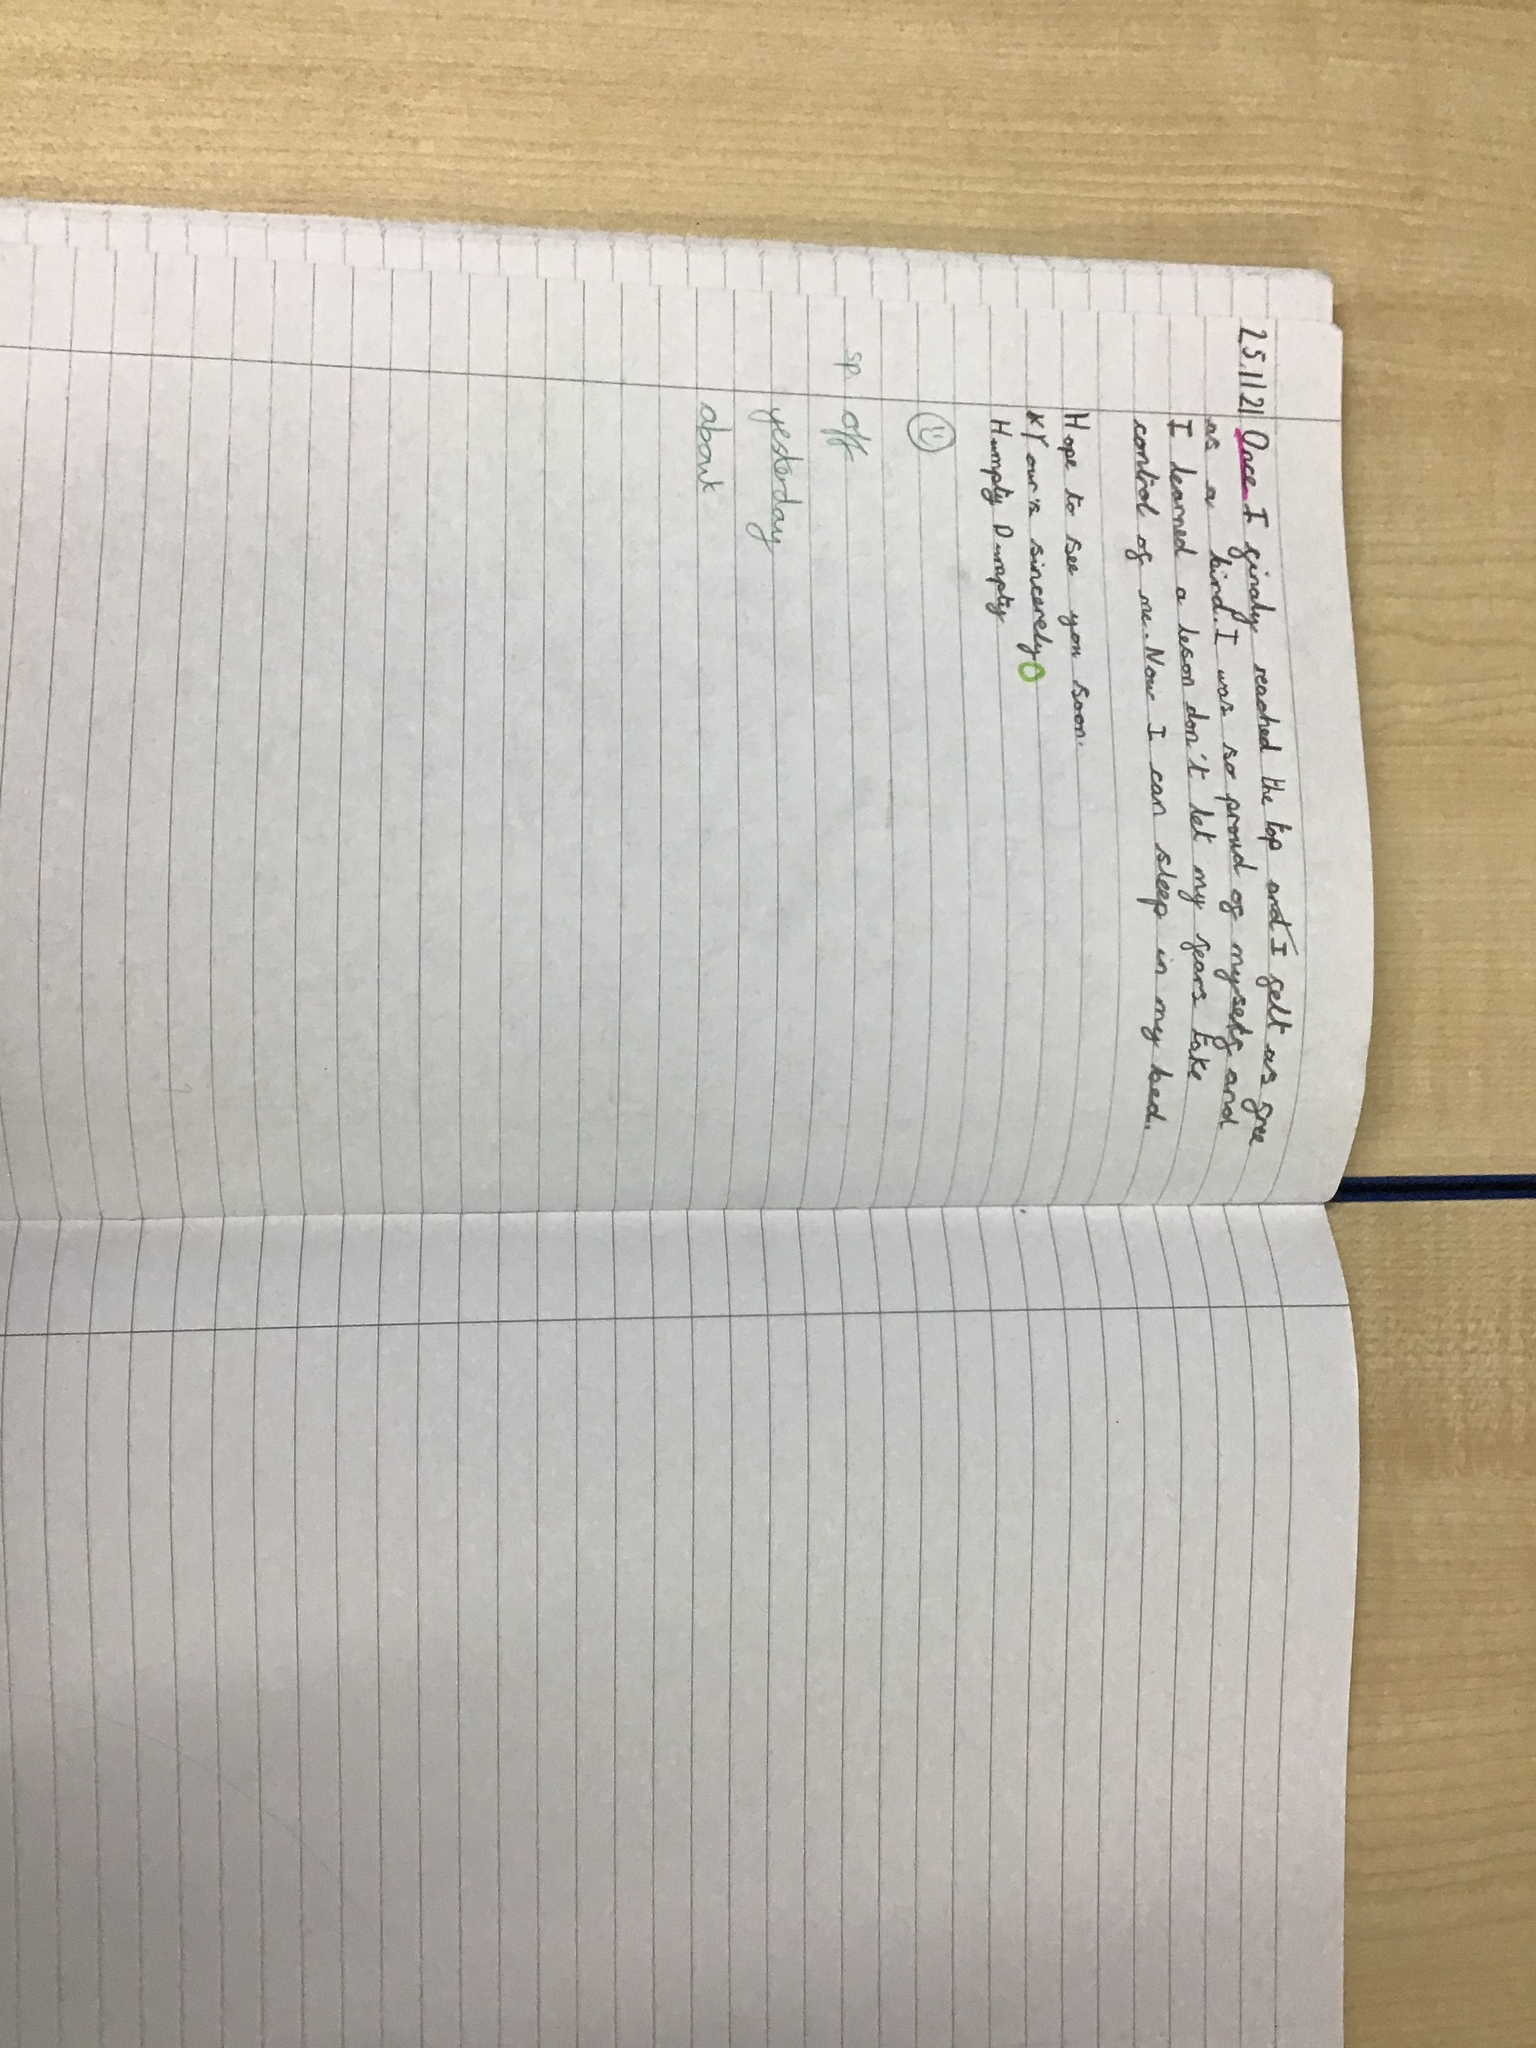 25.11.21 Once I finaly reached the top and I felt as free
as a bird. I was so proud of myself and
I learned a leson don't let my fears take
control of me. Now I can sleep in my bed.
Hope to see you soon.
Your's sincerely
Humpty Dumpty
sp. off
yesterday
about